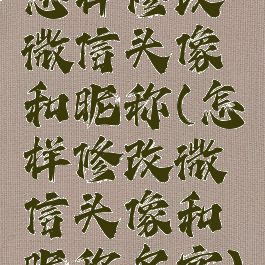 怎样修改
微信头像
和昵称(怎
样修改微
信头像和
昵称名字)